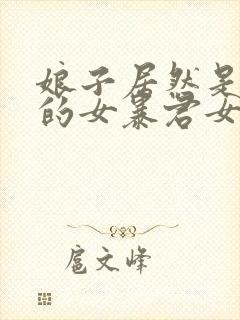 娘子居然是
的女暴君女
扈文峰